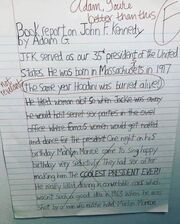 Adam, you're
better than this
F
Book report on John F. Kennedy
By Adam G.
JFK served as our 35th president of the United
States. He was born in Massachusetts in 1917
not relevant
(the same year Houdini was burried alive)
He liked women alot so when Jackie was away
he would host secret sex parties in the oval
office where famous women would get naked
and dance for the president. One night on his
birthday Marilyn Monroe came to sing happy
birthday very seductively. They had sex after
making him the COOLEST PRESIDENT EVER!
He really liked driving in convertible cars which
wasn't such a good idea in 1963 when he was
shot by a man who